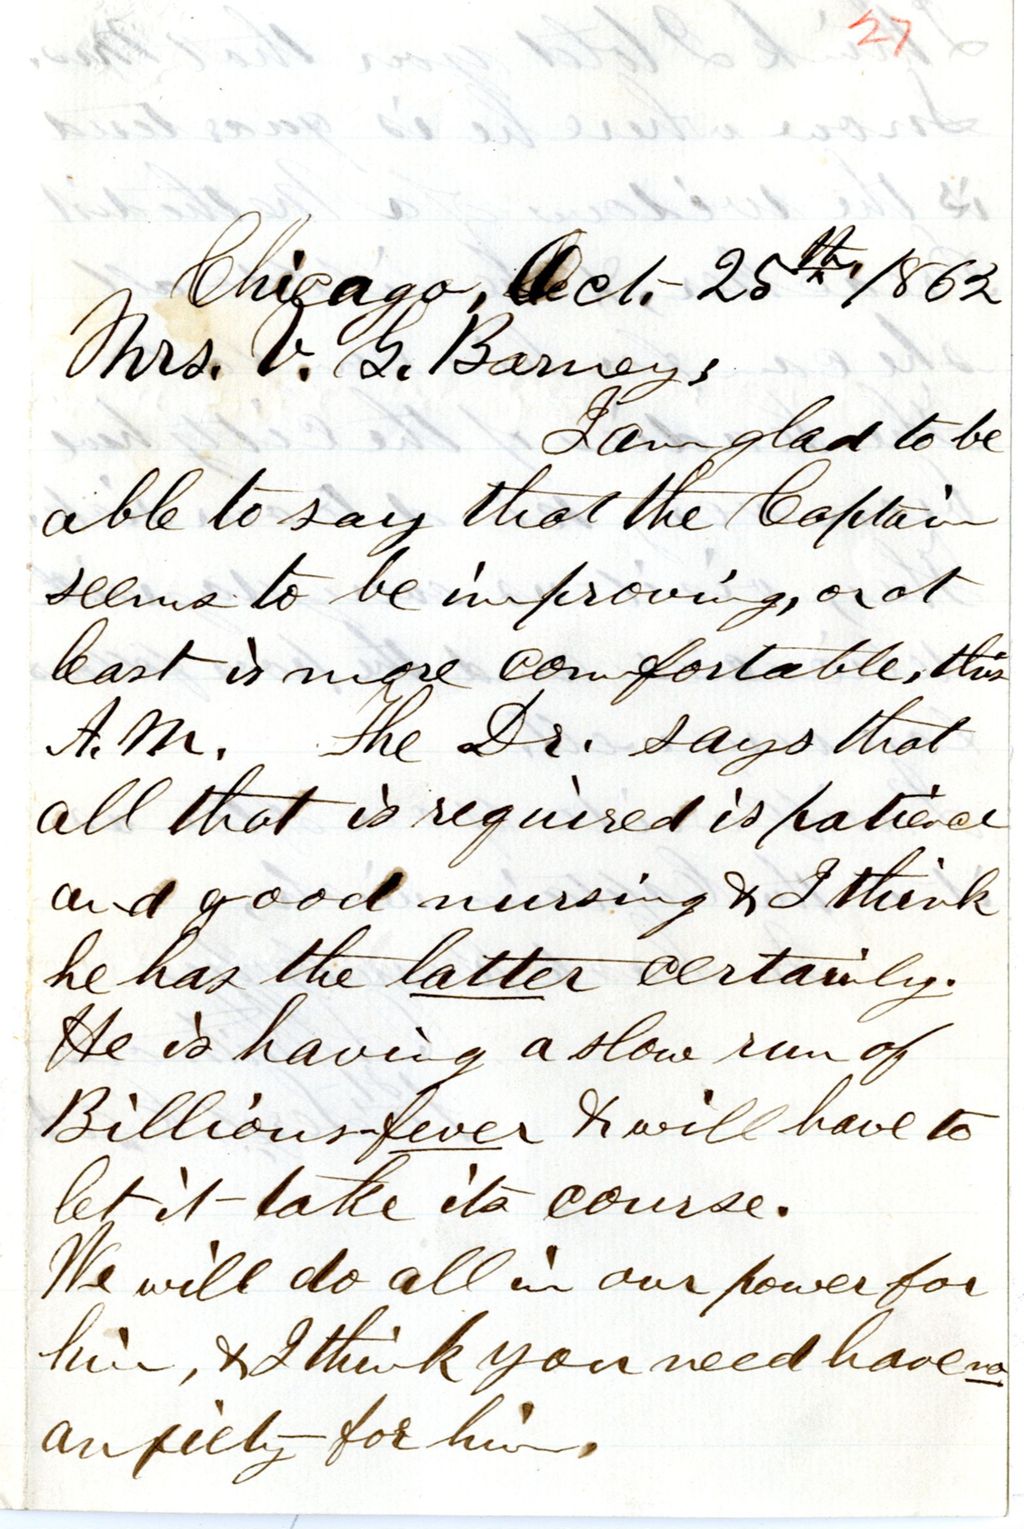 27
Chicago, Oct. 25th, 1862
Mrs. V. G. Barney,
I am glad to be
able to say that the Captain
seems to be improving, or at
least is more comfortable, this
A.M. The Dr. says that
all that is required is patience
and good nursing & I think
he has the latter certainly.
He is having a slow run of
Billious fever & will have to
let it take its course.
We will do all in our power for
him, & I think you need have no
anxiety for him.